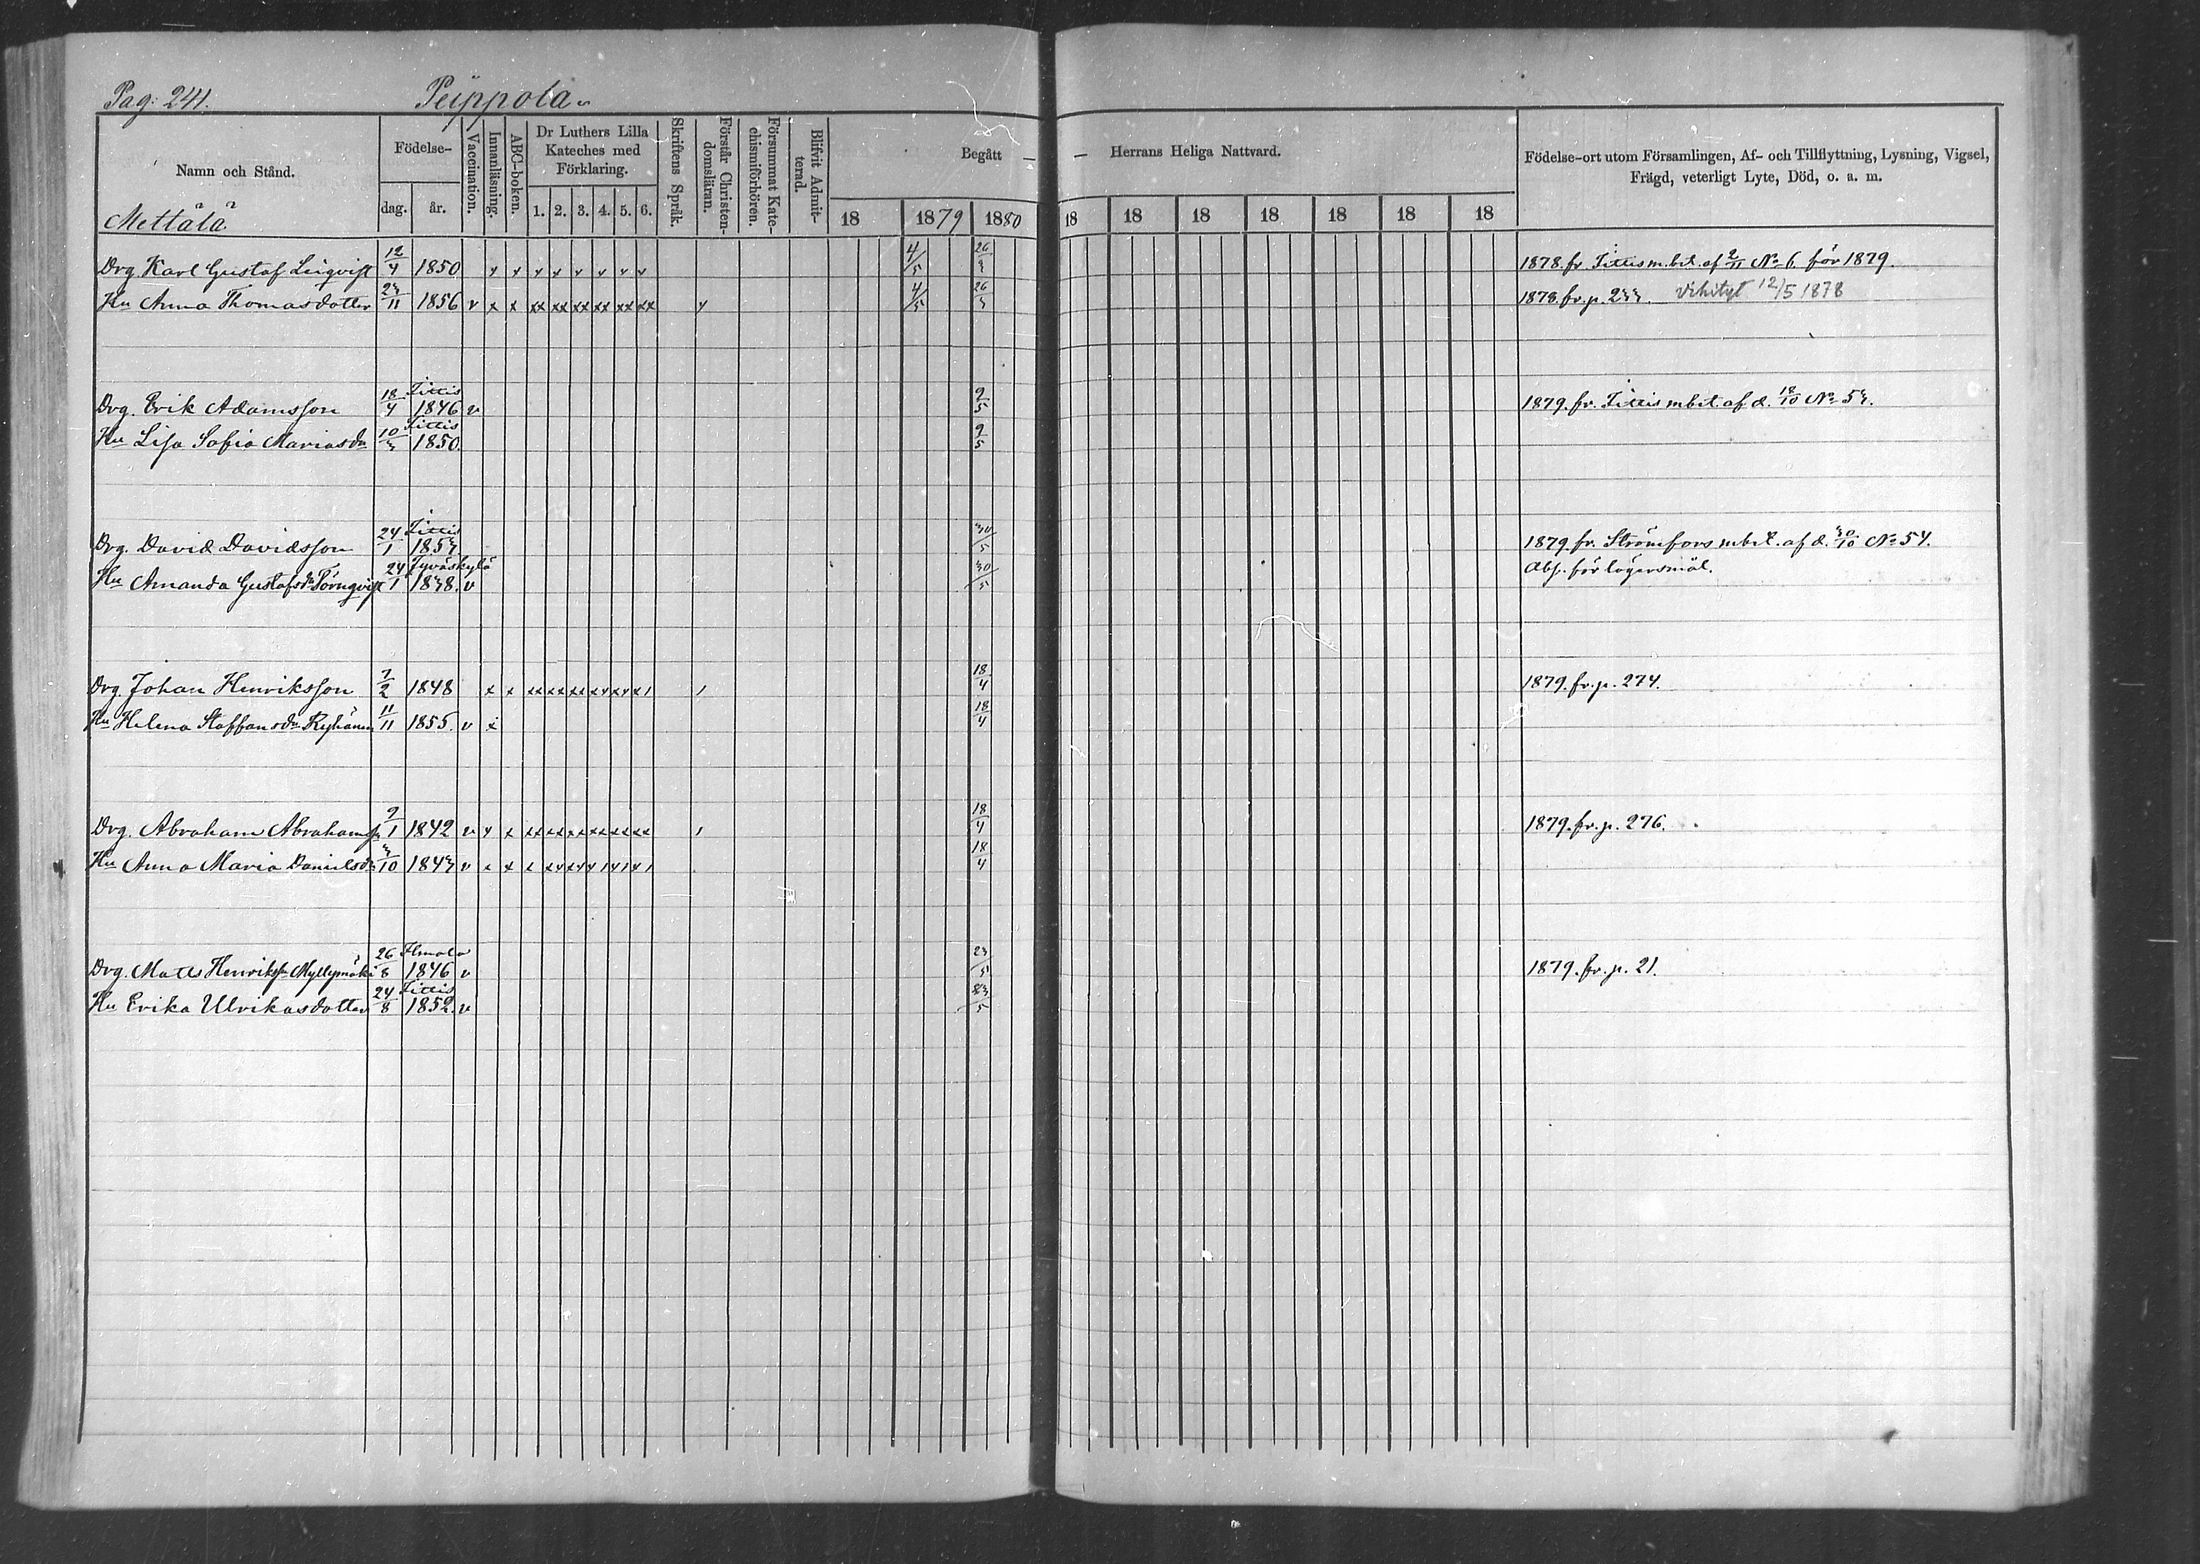 Pag: 241. Peippola
Namn och Stånd. Födelse- dag. år. Vaccination. Innanläsning. ABC-boken. Dr Luthers Lilla Kateches med Förklaring. 1. 2. 3. 4. 5. 6. Skriftens Språk. Förstår Christendomsläran. Försummat Katechismiförhören. Blifvit Admitterad. Begått — — Herrans Heliga Nattvard. Födelse-ort utom Församlingen, Af- och Tillflyttning, Lysning, Vigsel,
Frägd, veterligt Lyte, Död, o. a. m.
Mettälä 18 1879 1880 18 18 18 18 18 18 18
Drg Karl Gustaf Linqvist 12/4 1850 x x x x x x x x 4/5 26/3 1878. fr. Jittis m.bet. af 2/11 No 6. för 1879.
Hu Anna Thomasdotter 23/11 1856 v x x xx xx xx xx xx xx 4/5 26/3 1878. fr. p. 233. Vihityt 12/5 1878
Jittis
Drg. Erik Adamsson 18/4 1846 v 9/5 1879. fr. Jittis mbet. af d. 18/10 No 53.
Jittis
Hu Lisa Sofia Mariasdr 10/3 1850. 9/5
Jittis
Drg. David Davidsson 24/1 1853 30/5 1879. fr. Strömfors mbet. af d. 30/10 No 54.
Jyväskylä Abs. för lägersmål.
Hu Amanda Gustafsdr Törnqvist 24/1 1838. v 30/5
Drg. Johan Henriksson 7/2 1848 x x xx xx xx xx xx x1 1 18/4 1879. fr. p. 274.
Hu Helena Staffansdr Ryhänen 11/11 1855. v x 18/4
Drg. Abraham Abrahamss 9/1 1842 v x x xx xx xx xx xx xx 1 18/4 1879. fr. p. 276.
Hu Anna Maria Danielsdr 3/10 1843 v x x x 18/4
Ilmola
Drg. Matts Henrikss Myllymäki 26/8 1846 v 23/5 1879. fr. p. 21.
Jittis
Hu Erika Ulrikasdotter 24/8 1852. v 23/5